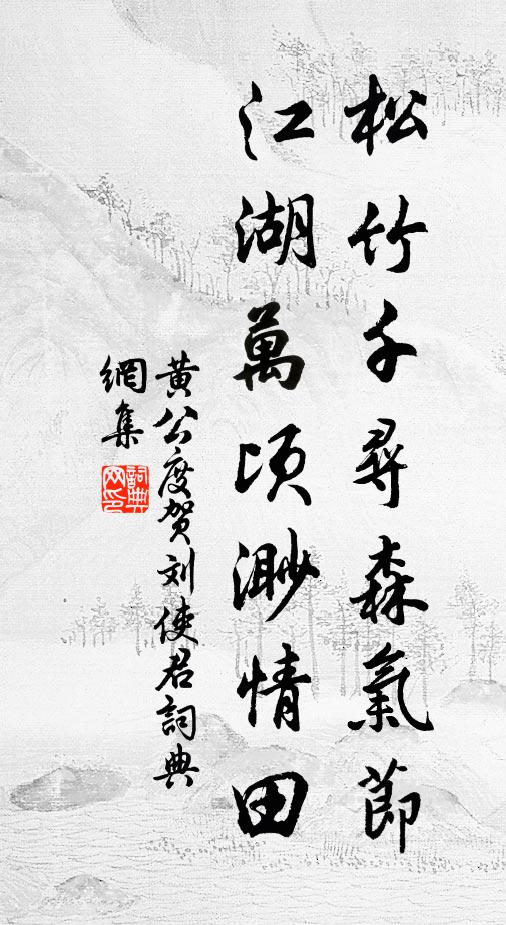 松竹千尋森氣節
江湖萬頃渺情田
黃公度賀刘使君詞典
網集
詞典网印